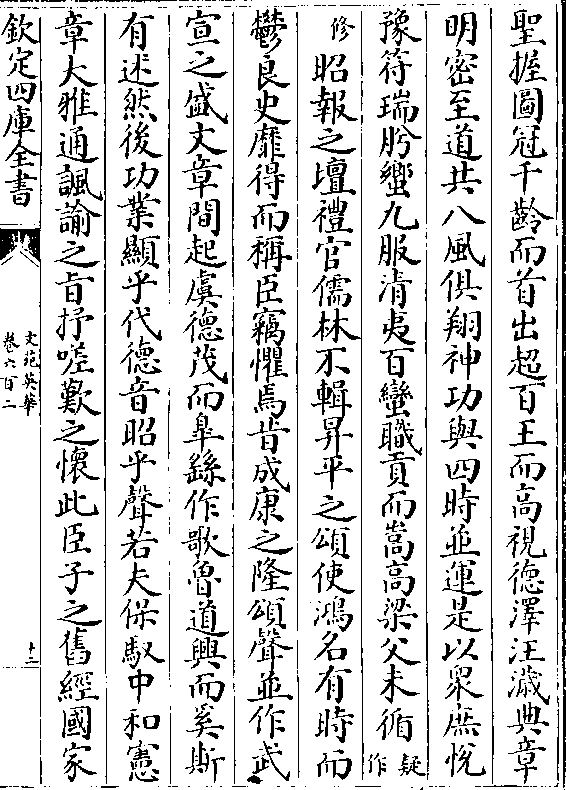 聖握圖冠千齡而首出超百王而高視德澤汪濊典章
明密至道共八風俱翔神功與四時並運是以衆庶悅
豫符瑞肹蠁九服清夷百蠻職貢而嵩高梁父未循疑作
修昭報之壇禮官儒林不輯昇平之頌使鴻名有時而
鬱良史靡得而稱臣竊懼焉昔成康之隆頌聲並作武
宣之盛文章間起虞德茂而臯繇作歌魯道興而奚斯
有述然後功業顯乎代德音昭乎聲若夫保馭中和憲
章大雅通諷諭之旨抒嗟歎之懷此臣子之舊經國家
欽定四庫全書
文苑英華
卷六百二
十二